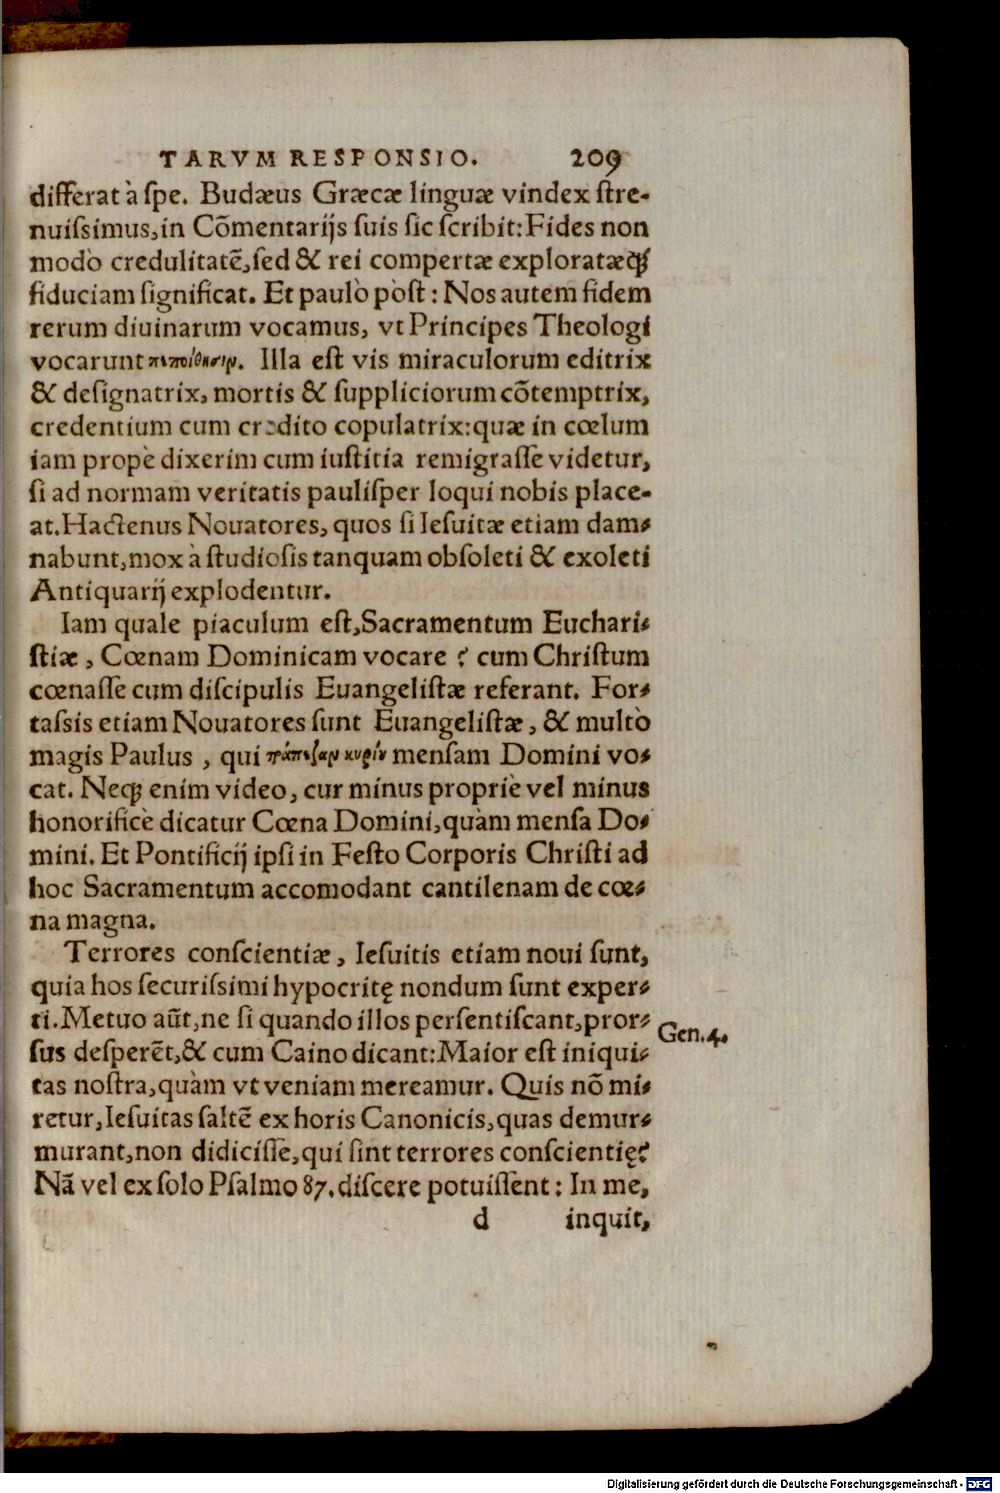 TARVM RESPONSIO. 209
differat à ſpe. Budæus Græcæ linguæ vindex ſtre-
nuiſsimus, in Cõmentarijs ſuis ſic ſcribit: Fides non
modò credulitatē, ſed & rei compertæ explorataeq́;
fiduciam ſignificat. Et paulò pòſt: Nos autem fidem
rerum diuinarum vocamus, vt Principes Theologi
vocarunt πεποίθησιν. Illa eſt vis miraculorum editrix
& deſignatrix, mortis & ſuppliciorum cõtemptrix,
credentium cum credito copulatrix: quæ in cœlum
iam propè dixerim cum iuſtitia remigraſſe videtur,
ſi ad normam veritatis pauliſper loqui nobis place-
at. Hactenus Nouatores, quos ſi Ieſuitæ etiam dam-
nabunt, mox à ſtudioſis tanquam obſoleti & exoleti
Antiquarij explodentur.
Iam quale piaculum eſt, Sacramentum Euchari-
ſtiæ, Cœnam Dominicam vocare? cum Chriſtum
cœnaſſe cum diſcipulis Euangeliſtæ referant. For-
taſsis etiam Nouatores ſunt Euangeliſtæ, & multò
magis Paulus, qui τράπεζαν κυρίου menſam Domini vo-
cat. Neq; enim video, cur minus propriè vel minus
honorificè dicatur Cœna Domini, quàm menſa Do-
mini. Et Pontificij ipſi in Feſto Corporis Chriſti ad
hoc Sacramentum accomodant cantilenam de cœ-
na magna.
Terrores conſcientiæ, Ieſuitis etiam noui ſunt,
quia hos ſecuriſsimi hypocritę nondum ſunt exper-
ti. Metuo aũt, ne ſi quando illos perſentiſcant, pror-
ſus deſperēt, & cum Caino dicant: Maior eſt iniqui-
Gen. 4.
tas noſtra, quàm vt veniam mereamur. Quis nõ mi-
retur, Ieſuitas ſaltē ex horis Canonicis, quas demur-
murant, non didiciſſe, qui ſint terrores conſcientię?
Nã vel ex ſolo Pſalmo 87. diſcere potuiſſent: In me,
d inquit,
Digitalisierung gefördert durch die Deutsche Forschungsgemeinschaft - DFG